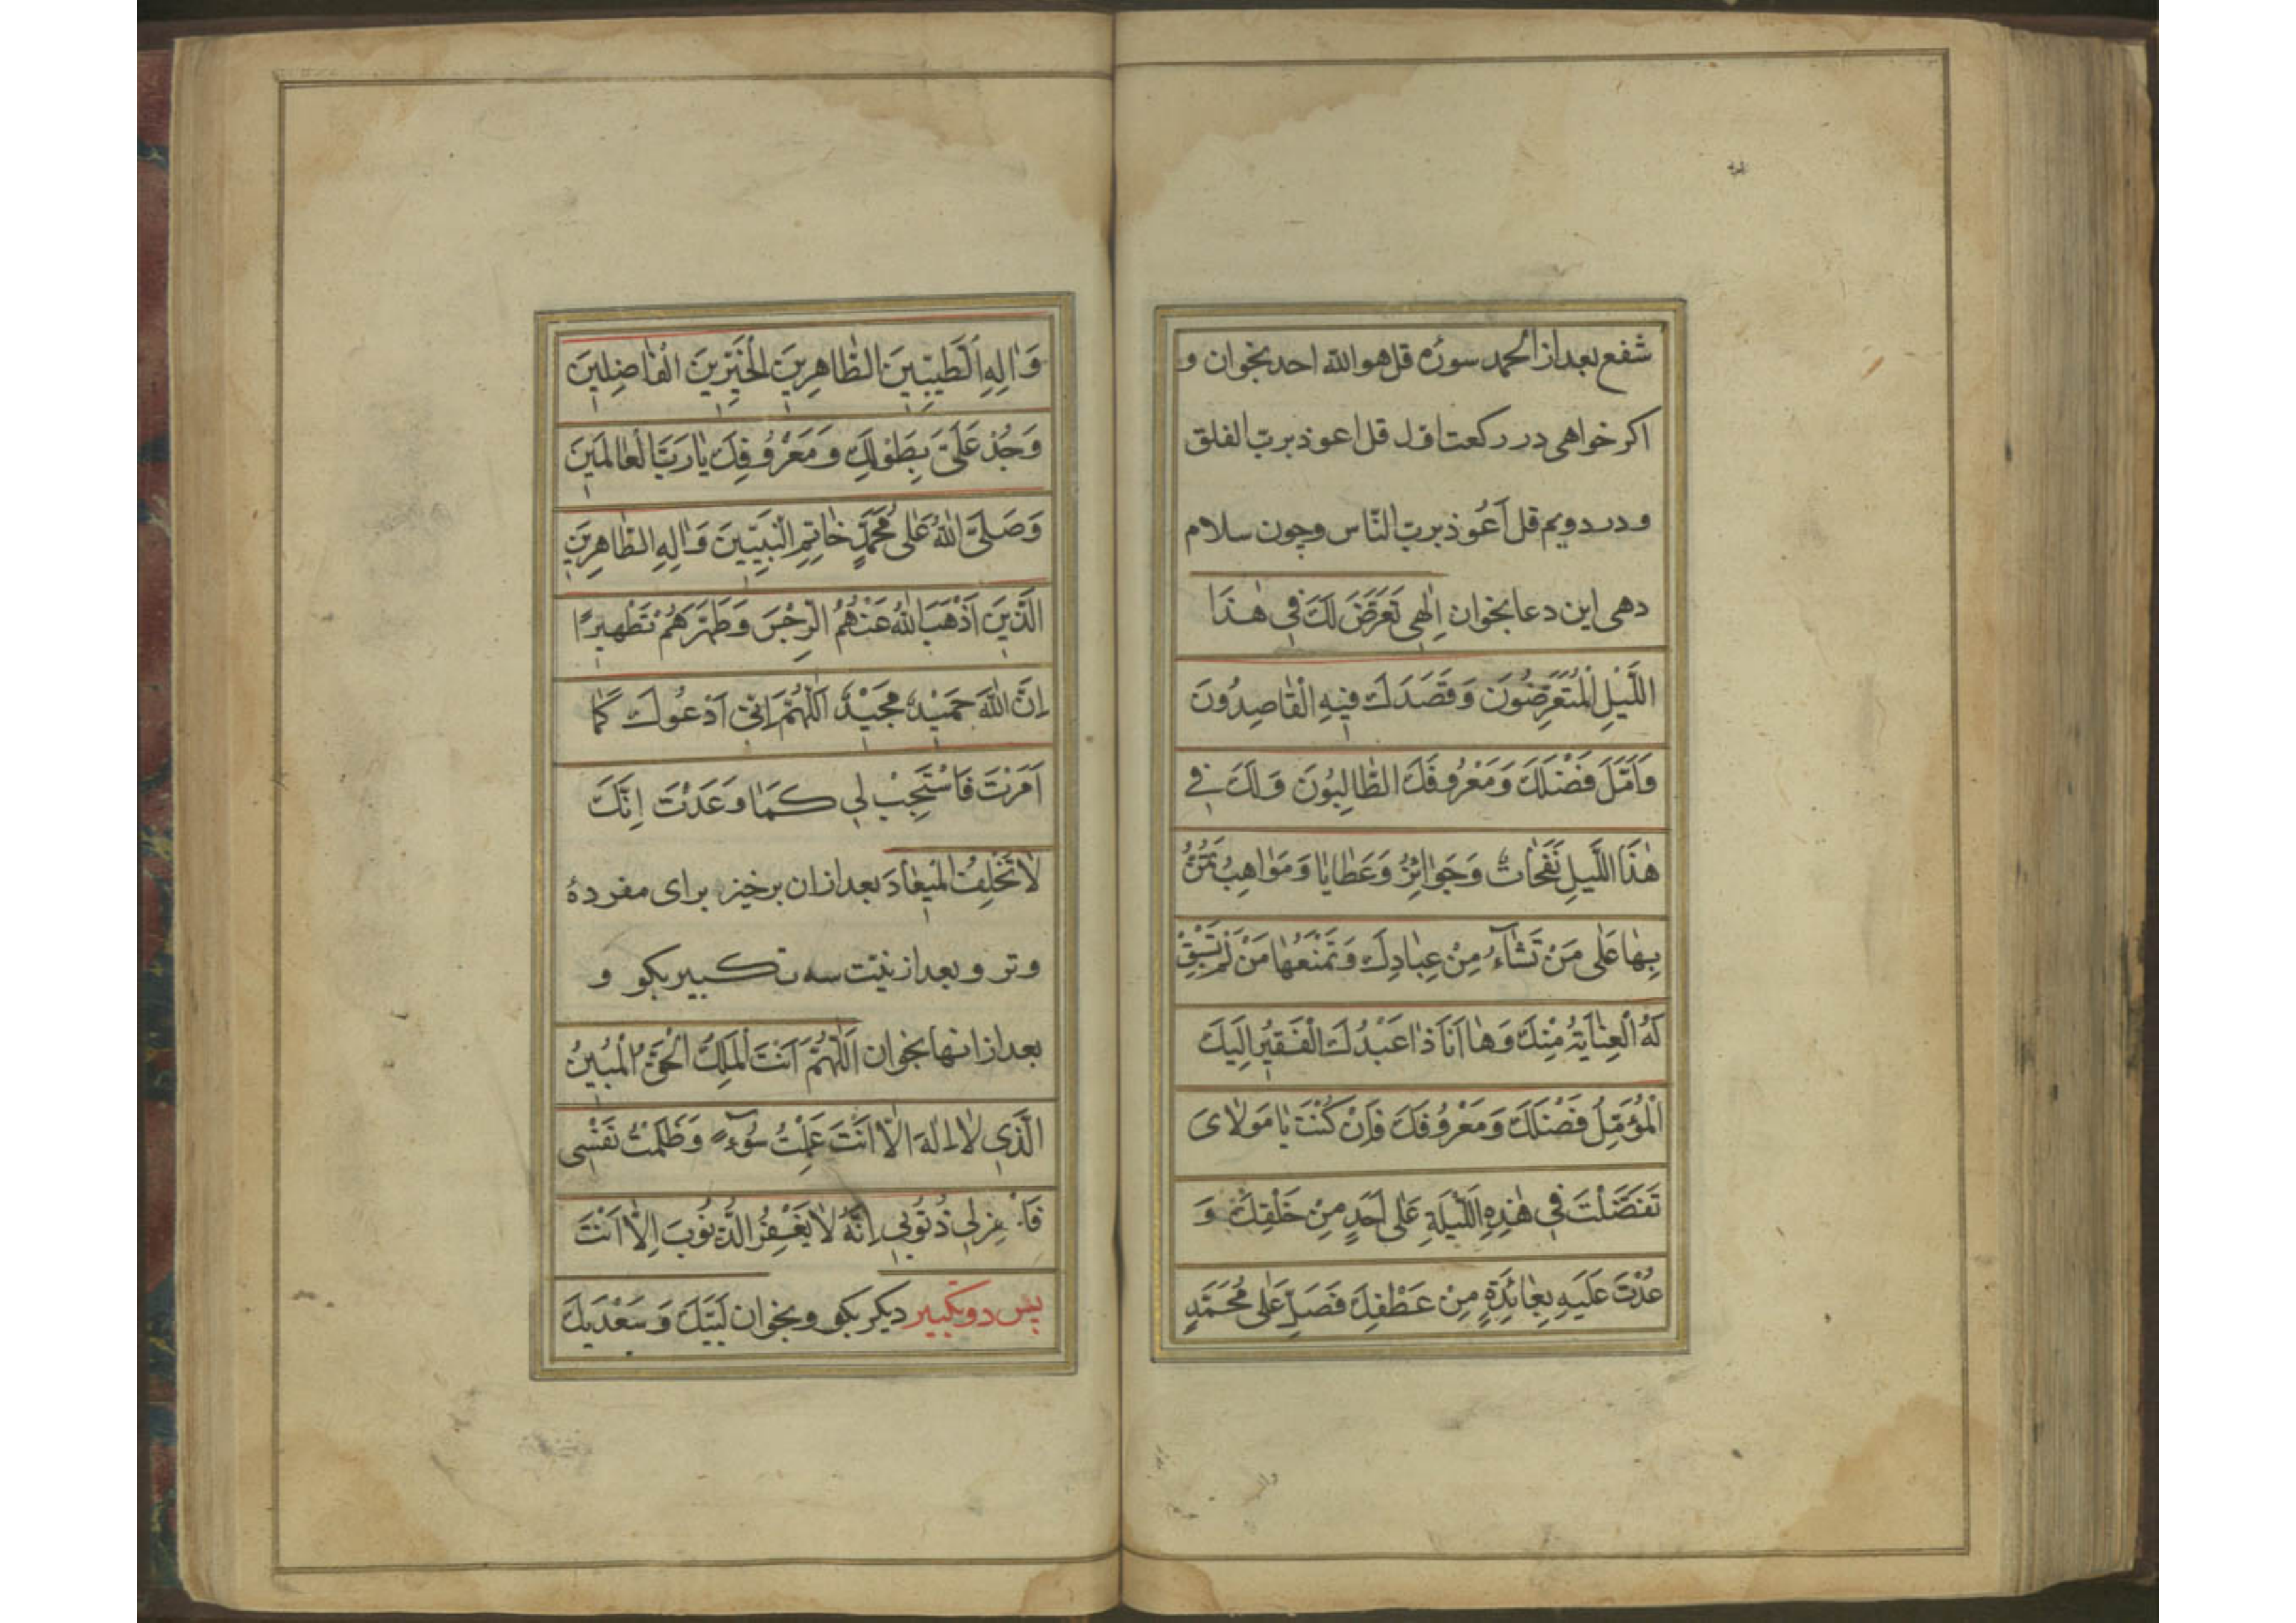 شفع بعد از الحمد سوره قل هو الله احد بخوان و
اکر خواهی در رکعت اول قل اعوذ برب الفلق
و در دویم قل اَعُوذ برب النّاس و چون سلام
دهی این دعا بخوان اِلٰهی تَعَرَّضَ لَكَ فِي هٰذَا
اللَّيْلِ الْمُتَعَرِّضُونَ وَ قَصَدَكَ فِيهِ الْقَاصِدُونَ
وَ اَمَّلَ فَضْلَكَ وَ مَعْرُوفَكَ الطَّالِبُونَ وَ لَكَ فِي
هٰذَا اللَّيلِ نَفَحَاتٌ وَ جَوَائِزُ وَ عَطَايَا وَ مَوَاهِبُ تَمُنُّ
بِهَا عَلٰى مَنْ تَشَآءُ مِنْ عِبَادِكَ وَ تَمْنَعُهَا مَنْ لَمْ تَسْبِقْ
لَهُ الْعِنَايَةُ مِنْكَ وَ هَا اَنَا ذَا عَبْدُكَ الْفَقِيرُ اِلَيكَ
الْمُؤَمِّلُ فَضْلَكَ وَ مَعْرُوفَكَ فَاِنْ كُنْتَ يَا مَوْلَاىَ
تَفَضَّلْتَ فِي هٰذِهِ اللَّيْلَةِ عَلٰى اَحَدٍ مِنْ خَلْقِكَ وَ
عُدْتَ عَلَيهِ بِعَائِدَةٍ مِنْ عَطْفِكَ فَصَلِّ عَلٰى مُحَمَّدٍ
وَ اٰلِهِ الطَّيِّبِينَ الطَّاهِرِينَ الْخَيِّرِينَ الْفَاضِلِينَ
وَ جُدْ عَلَىَّ بِطَوْلِكَ وَ مَعْرُوفِكَ يَا رَبَّ الْعَالَمِينَ
وَ صَلَّى اللهُ عَلٰى مُحَمَّدٍ خَاتِمِ النَّبِيّينَ وَ اٰلِهِ الطَّاهِرِينَ
الَّذِينَ اَذْهَبَ اللهُ عَنْهُمُ الرِّجْسَ وَ طَهَّرَهُمْ تَطْهِيرًا
اِنَّ اللهَ حَمِيْدٌ مَجِيْدٌ اَللّٰهُمَّ اِنِّي اَدْعُوكَ كَمَا
اَمَرْتَ فَاسْتَجِبْ لِي كَمَا وَعَدْتَ اِنَّكَ
لَا تُخْلِفُ الْمِيعَادَ بعد از ان برخیز برای مفردۀ
وتر و بعد از نیّت سه تکبیر بکو و
بعد از انها بخوان اَللّٰهُمَّ اَنْتَ الْمَلِكُ الْحَقُّ الْمُبِينُ
الَّذِي لَا اِلٰهَ اِلَّا اَنْتَ عَمِلْتُ سُوْءً وَ ظَلَمْتُ نَفْسِي
فَاغْفِرْ لِي ذُنُوبِي اِنَّهُ لَا يَغْفِرُ الذُّنُوبَ اِلَّا اَنْتَ
پس دو تکبیر دیکر بکو و بخوان لَبَّيْكَ وَ سَعْدَيْكَ